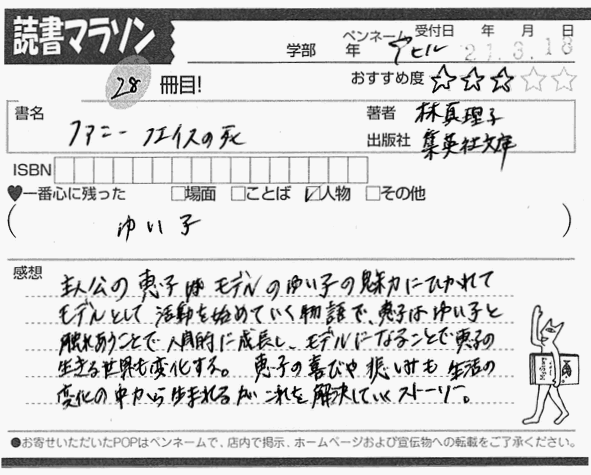 読書マラソン
学部 年 ペンネーム アヒル 受付日 年 月 日
21.3.18
28 冊目!
おすすめ度 ☆☆☆☆☆
書名 ファニーフェイスの死
著者 林真理子
出版社 集英社文庫
ISBN
♥一番心に残った □場面 □ことば ☑人物 □その他
( ゆい子 )
感想
主人公の恵子はモデルのゆい子の魅力にひかれて
モデルとして活動を始めていく物語で、恵子はゆい子と
触れあうことで人間的に成長し、モデルになることで恵子の
生きる世界も変化する。恵子の喜びや悲しみも生活の
変化の中から生まれるがこれを解決していくストーリー。
●お寄せいただいたPOPはペンネームで、店内で掲示、ホームページおよび宣伝物への転載をご了承ください。